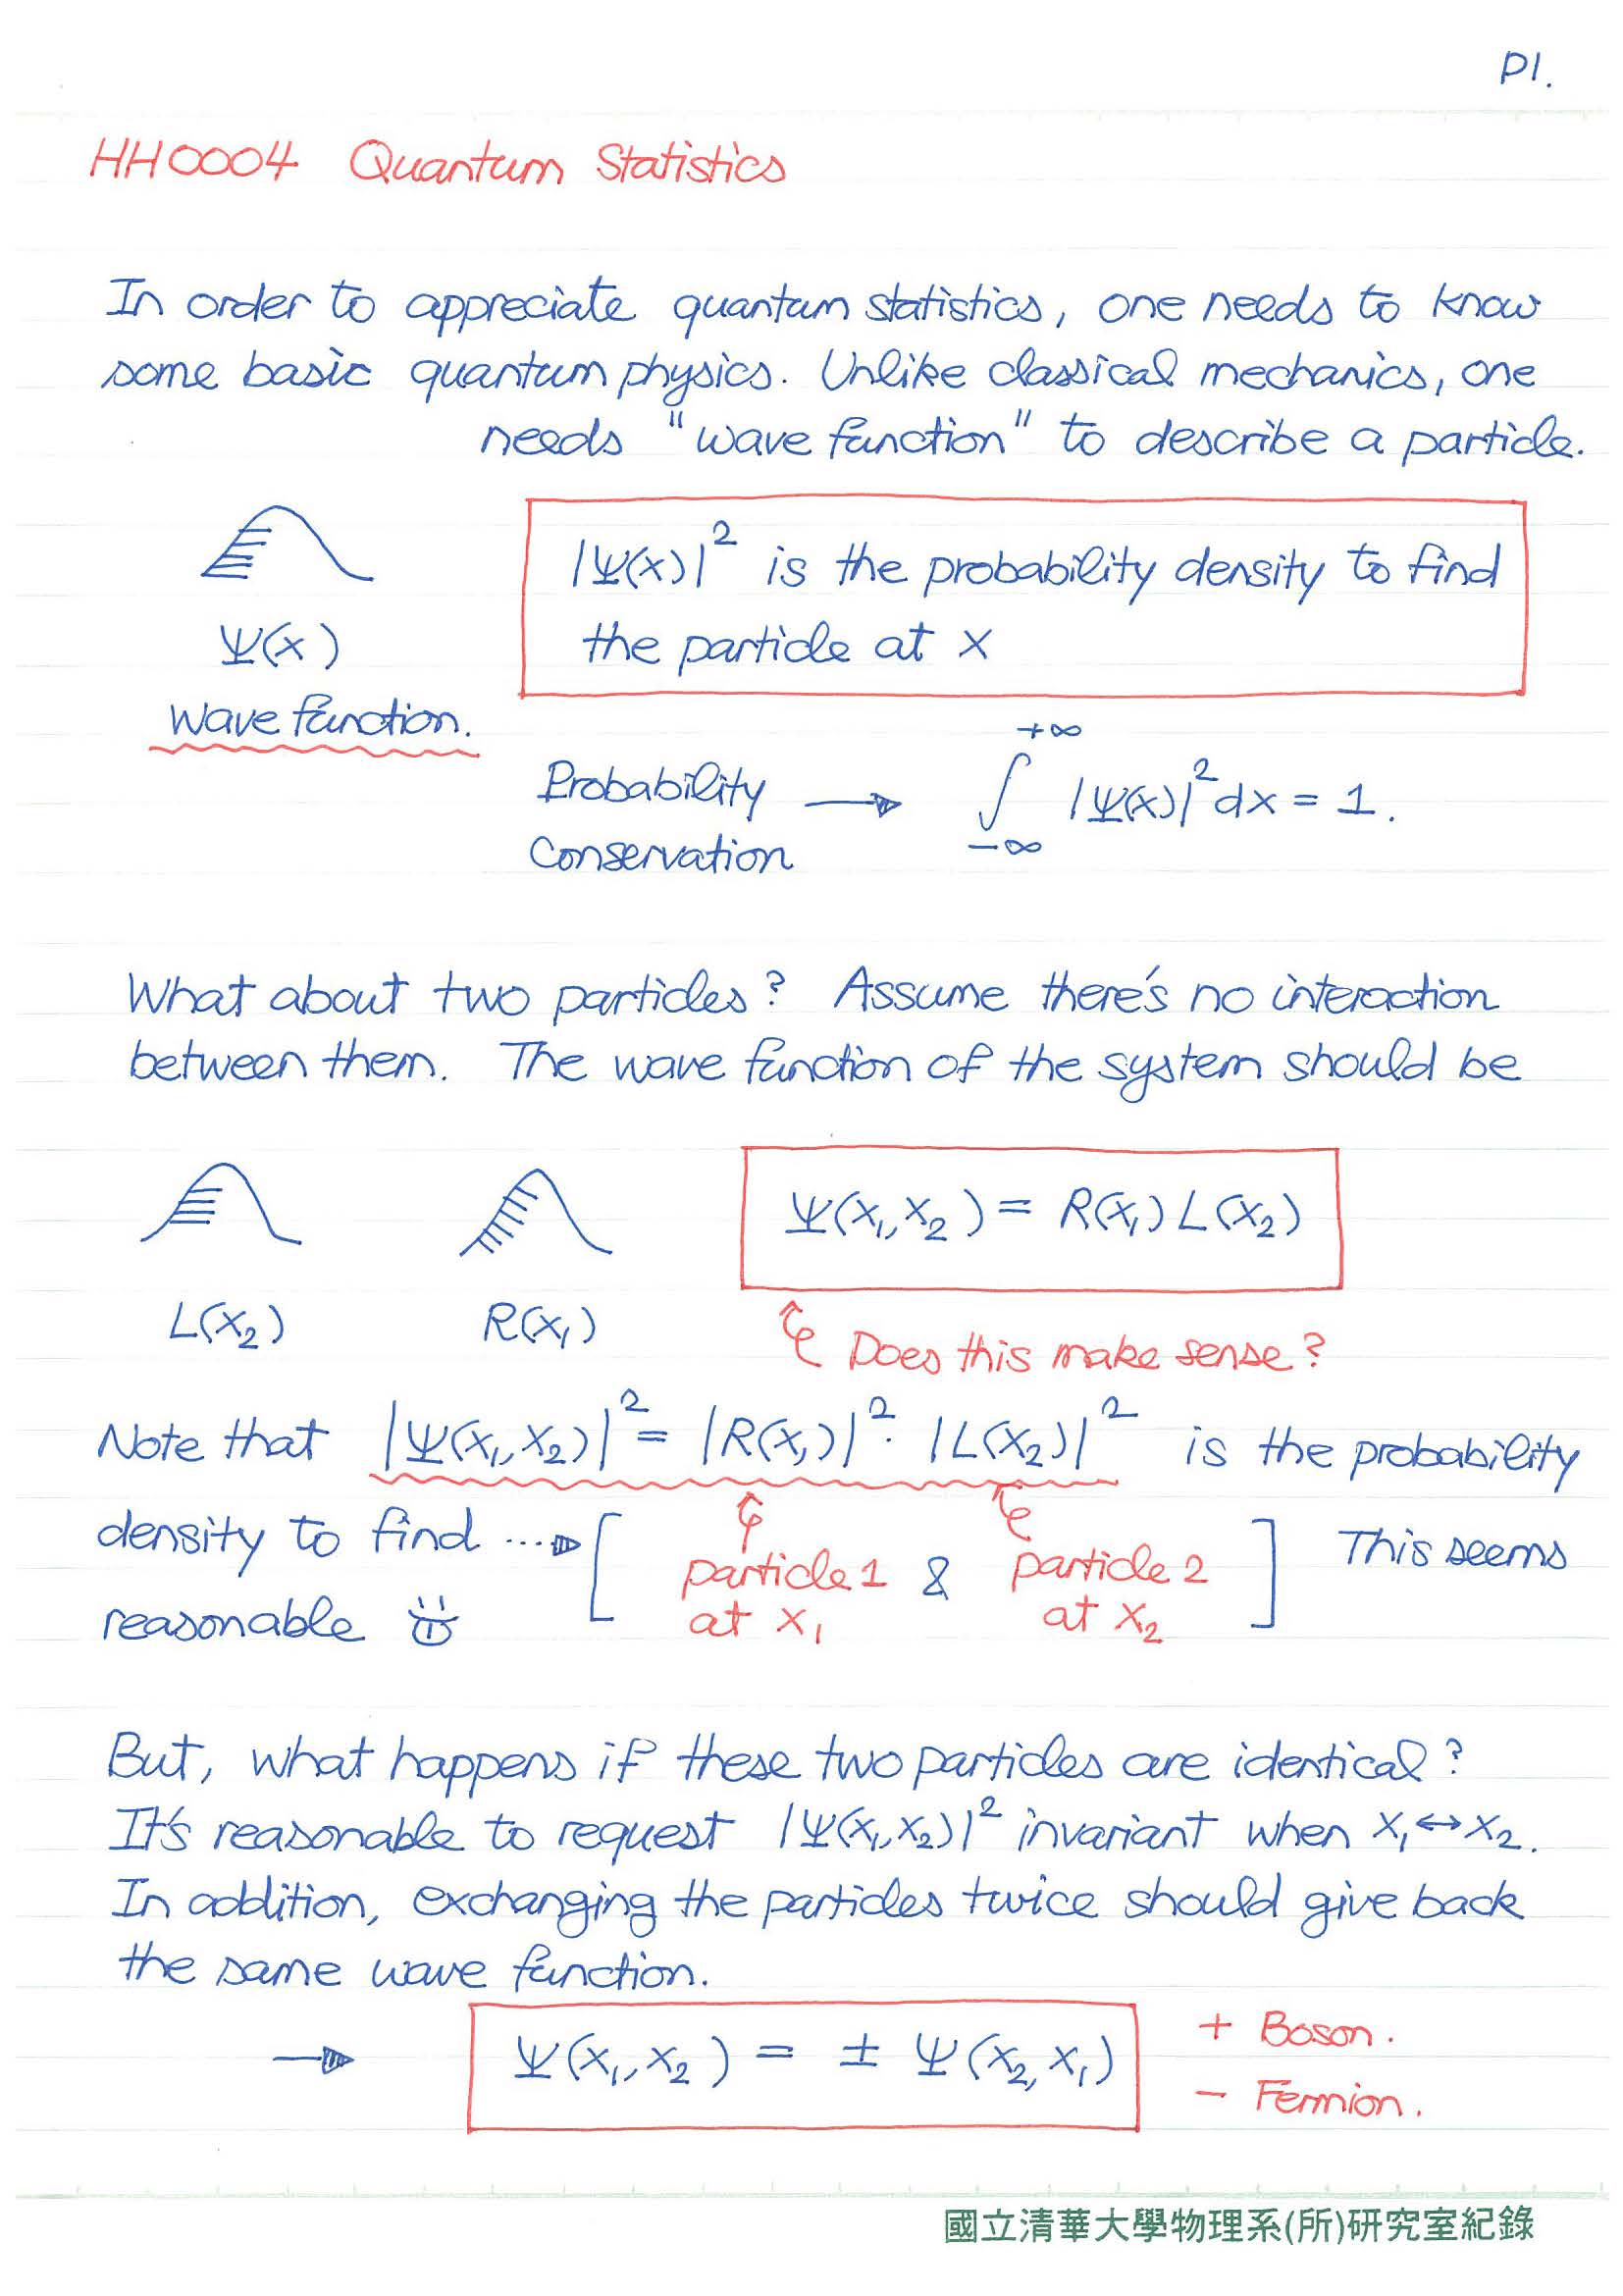 P1.
HH0004 Quantum Statistics
In order to appreciate quantum statistics, one needs to know
some basic quantum physics. Unlike classical mechanics, one
needs "wave function" to describe a particle.
|Ψ(x)|² is the probability density to find
the particle at x
Ψ(x)
wave function.
Probability Conservation → ∫_{-∞}^{+∞} |Ψ(x)|² dx = 1.
What about two particles? Assume there's no interaction
between them. The wave function of the system should be
Ψ(x₁,x₂) = R(x₁) L(x₂)
L(x₂) R(x₁)
Does this make sense?
Note that |Ψ(x₁,x₂)|² = |R(x₁)|² · |L(x₂)|² is the probability
density to find ...→ [ particle 1 at x₁ & particle 2 at x₂ ] This seems
reasonable
But, what happens if these two particles are identical?
It's reasonable to request |Ψ(x₁,x₂)|² invariant when x₁↔x₂.
In addition, exchanging the particles twice should give back
the same wave function.
→ Ψ(x₁,x₂) = ± Ψ(x₂,x₁)
+ Boson.
− Fermion.
國立清華大學物理系(所)研究室紀錄